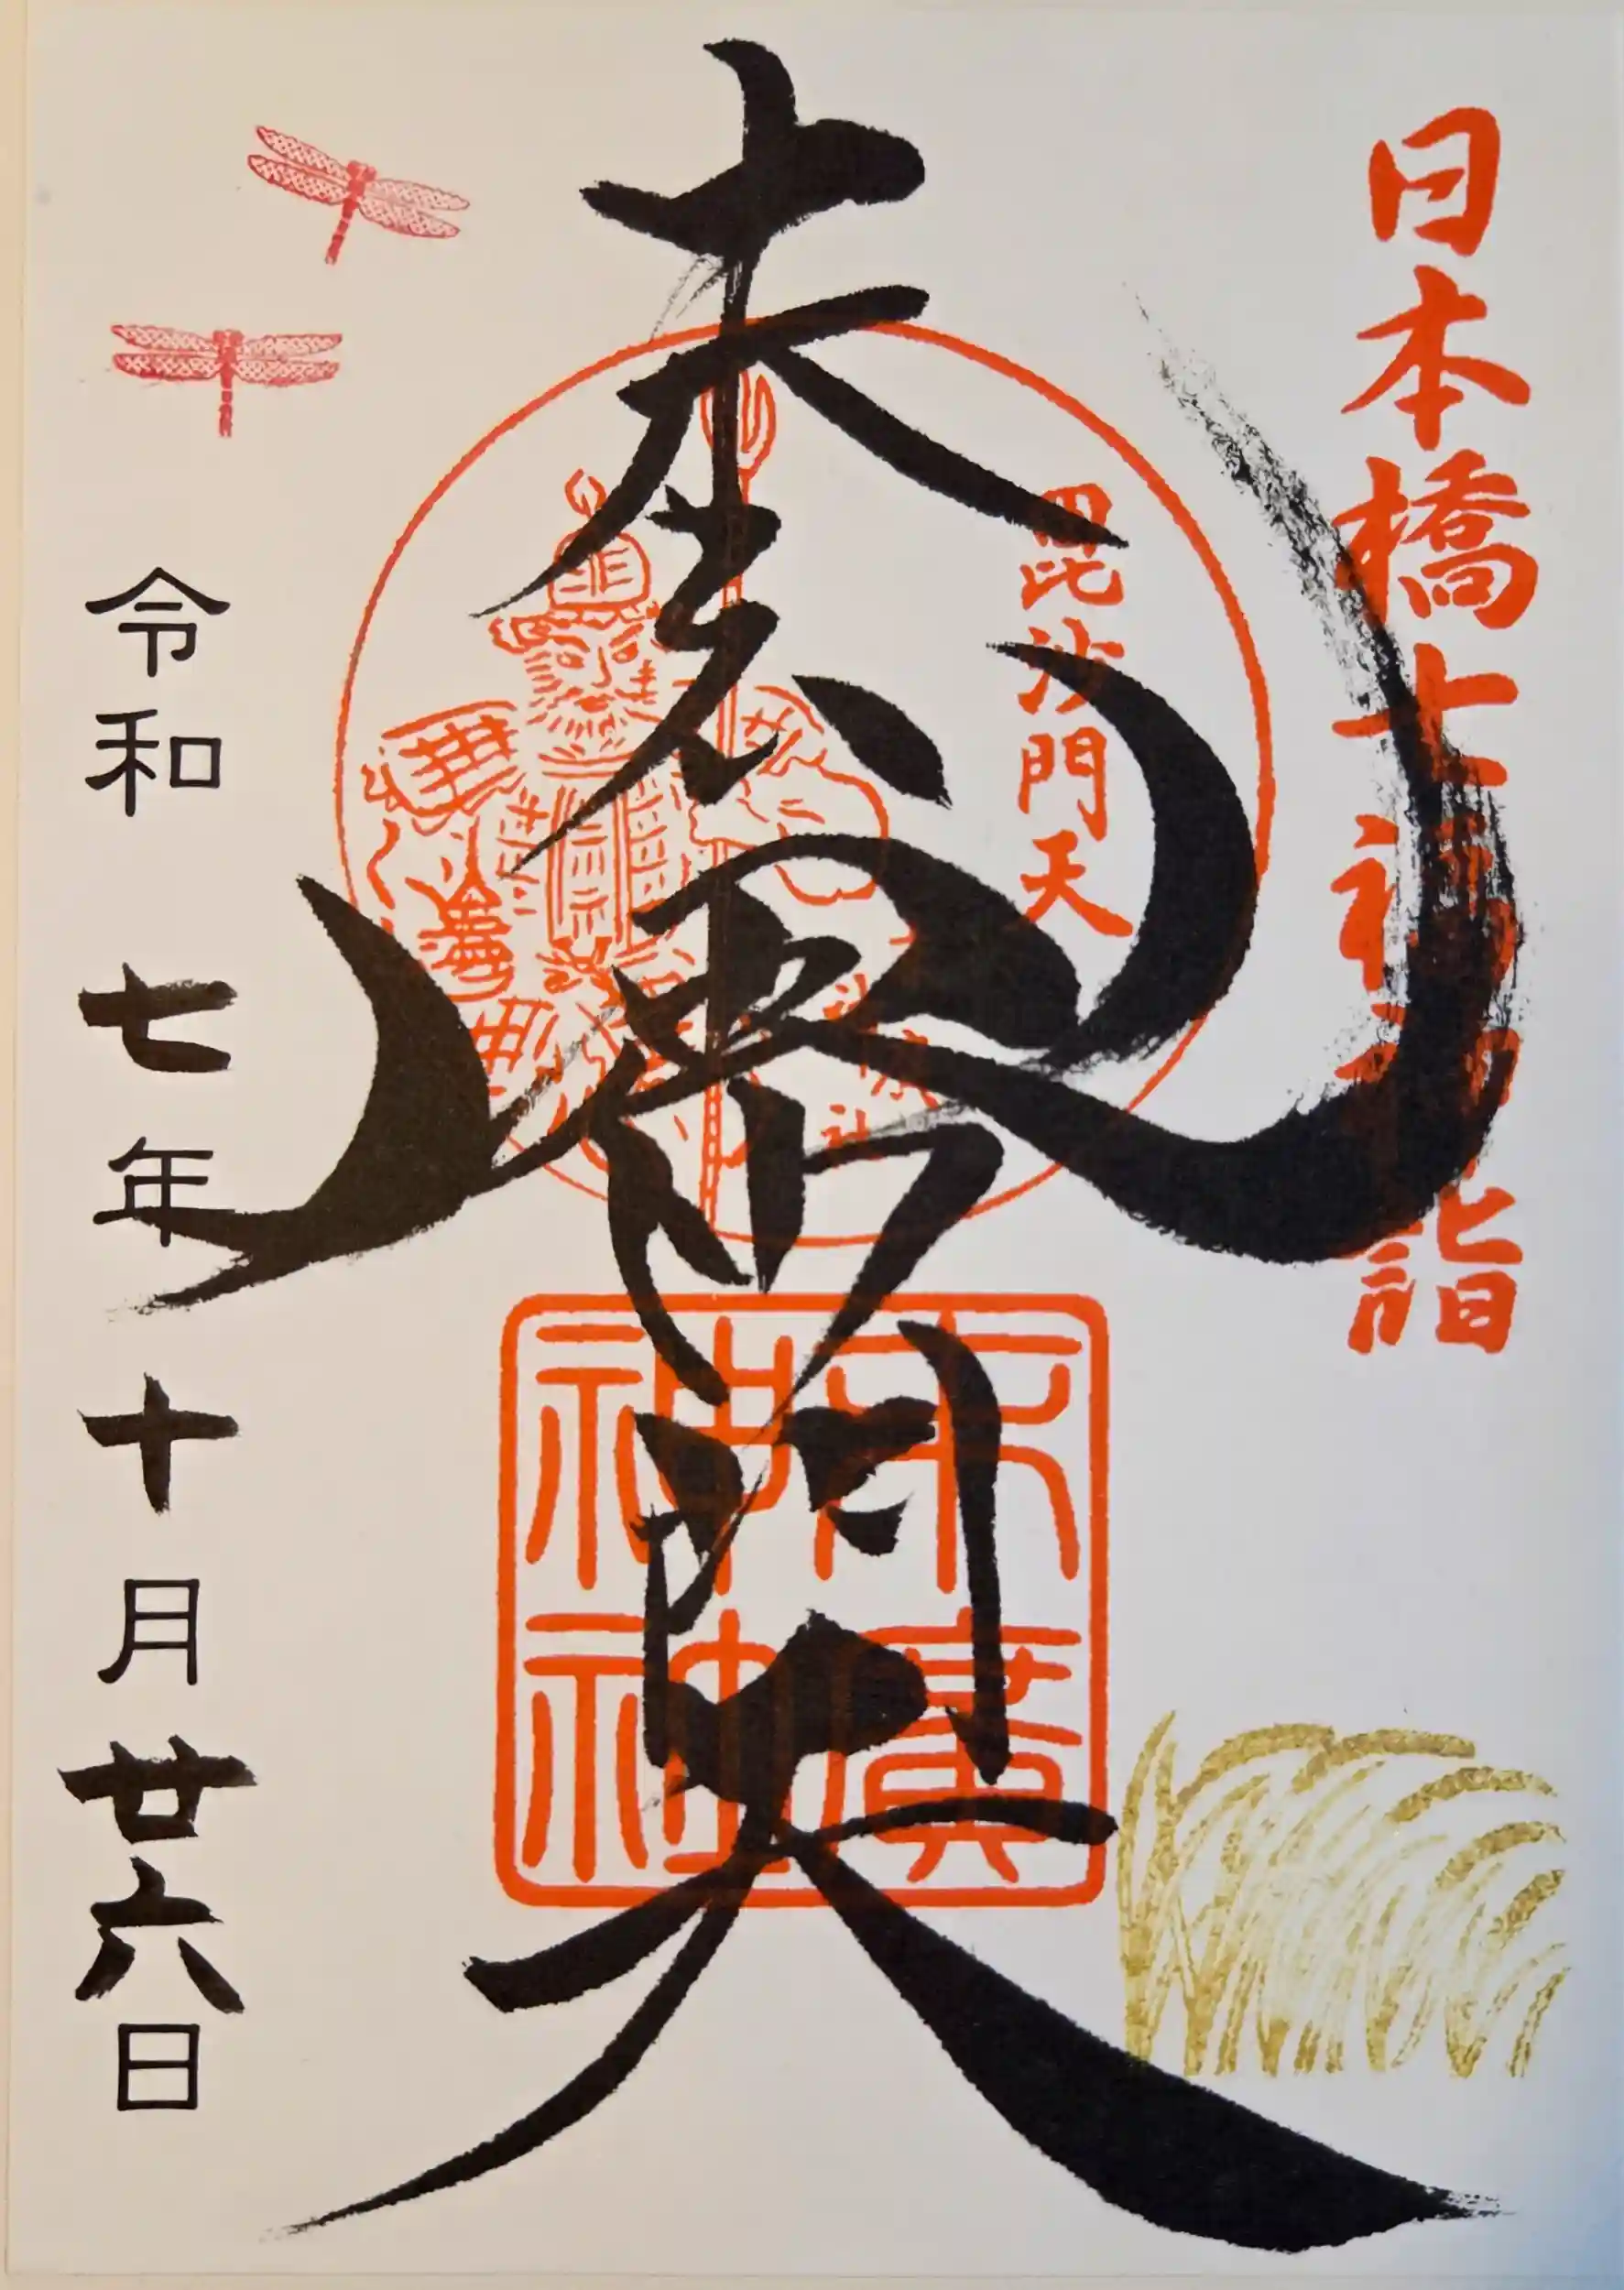 日本橋七福神詣
毘沙門天
毘沙門天
末廣
神社
令和七年十月廿六日